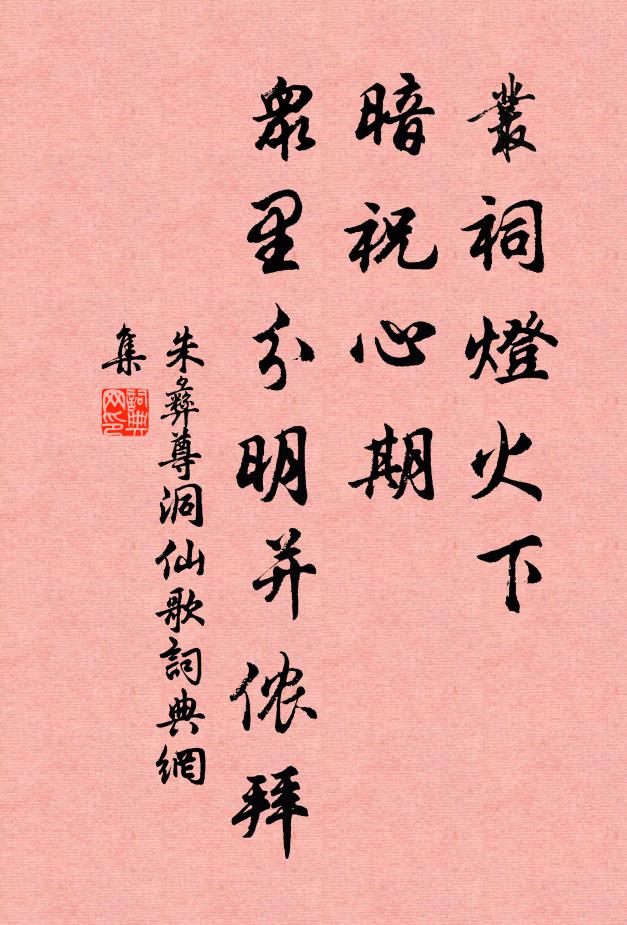 叢祠燈火下
暗祝心期
眾里分明并侬拜
朱彝尊洞仙歌詞典網
集
詞典网印